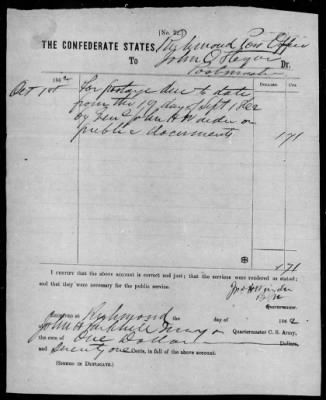 [No. 22.]
THE CONFEDERATE STATES, Richmond Post Office
TO John O Steger Dr.
Postmaster
1862
DOLLARS CTS.
Oct 1st For postage due to date
from the 19 day of Sept 1862
by Genl John H Winder on
public documents 1 71
1.71
I CERTIFY that the above account is correct and just; that the services were rendered as stated;
and that they were necessary for the public service.
Jno H Winder
Quartermaster.
RECEIVED at Richmond the day of 1862
Quartermaster C. S. Army,
the sum of One Dollar Dollars,
and Seventy one Cents, in full of the above account.
(SIGNED IN DUPLICATE.)